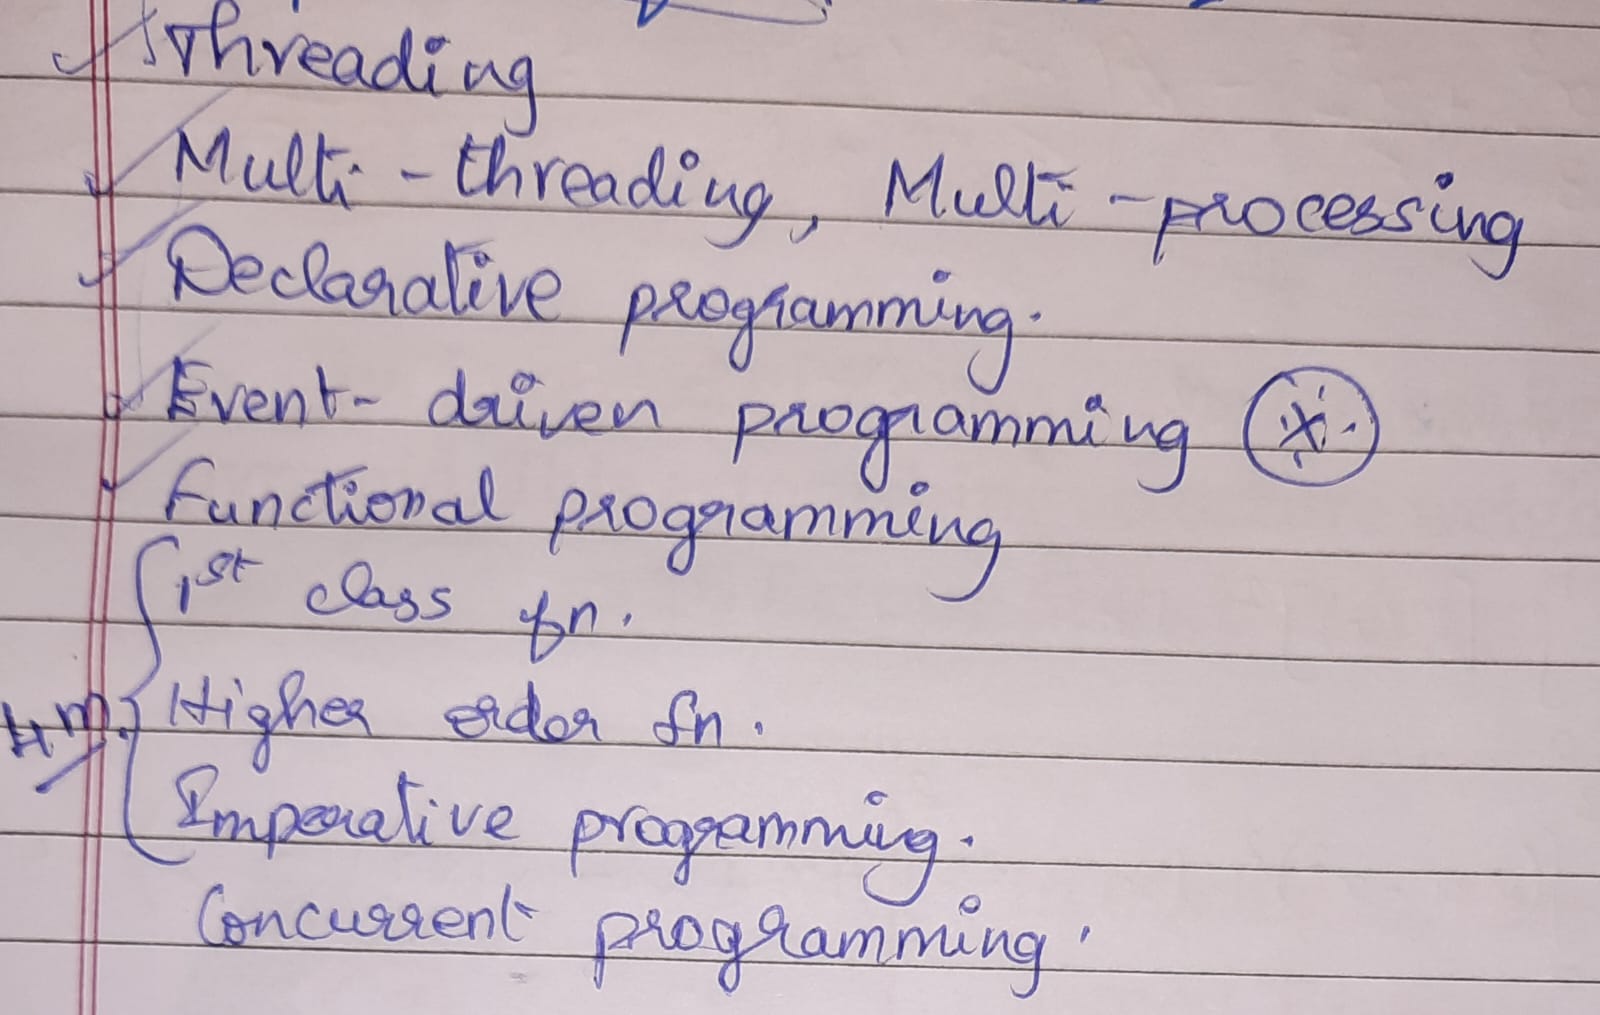 Threading
Multi-threading, Multi-processing
Declarative programming.
Event-driven programming
Functional programming
1st class fn.
4m. Higher order fn.
Imperative programming.
Concurrent programming.